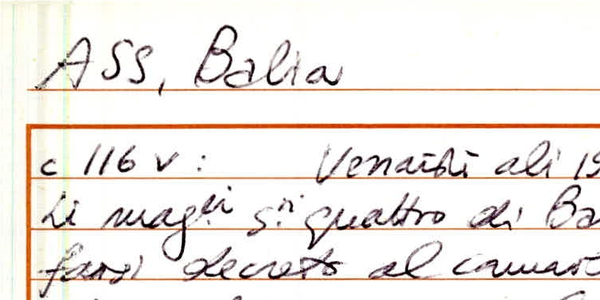 ASS, Balia
c 116 v : Venardì alì 15
Li mag.ci S.ri quattro di Ba
farsi decreto al camar